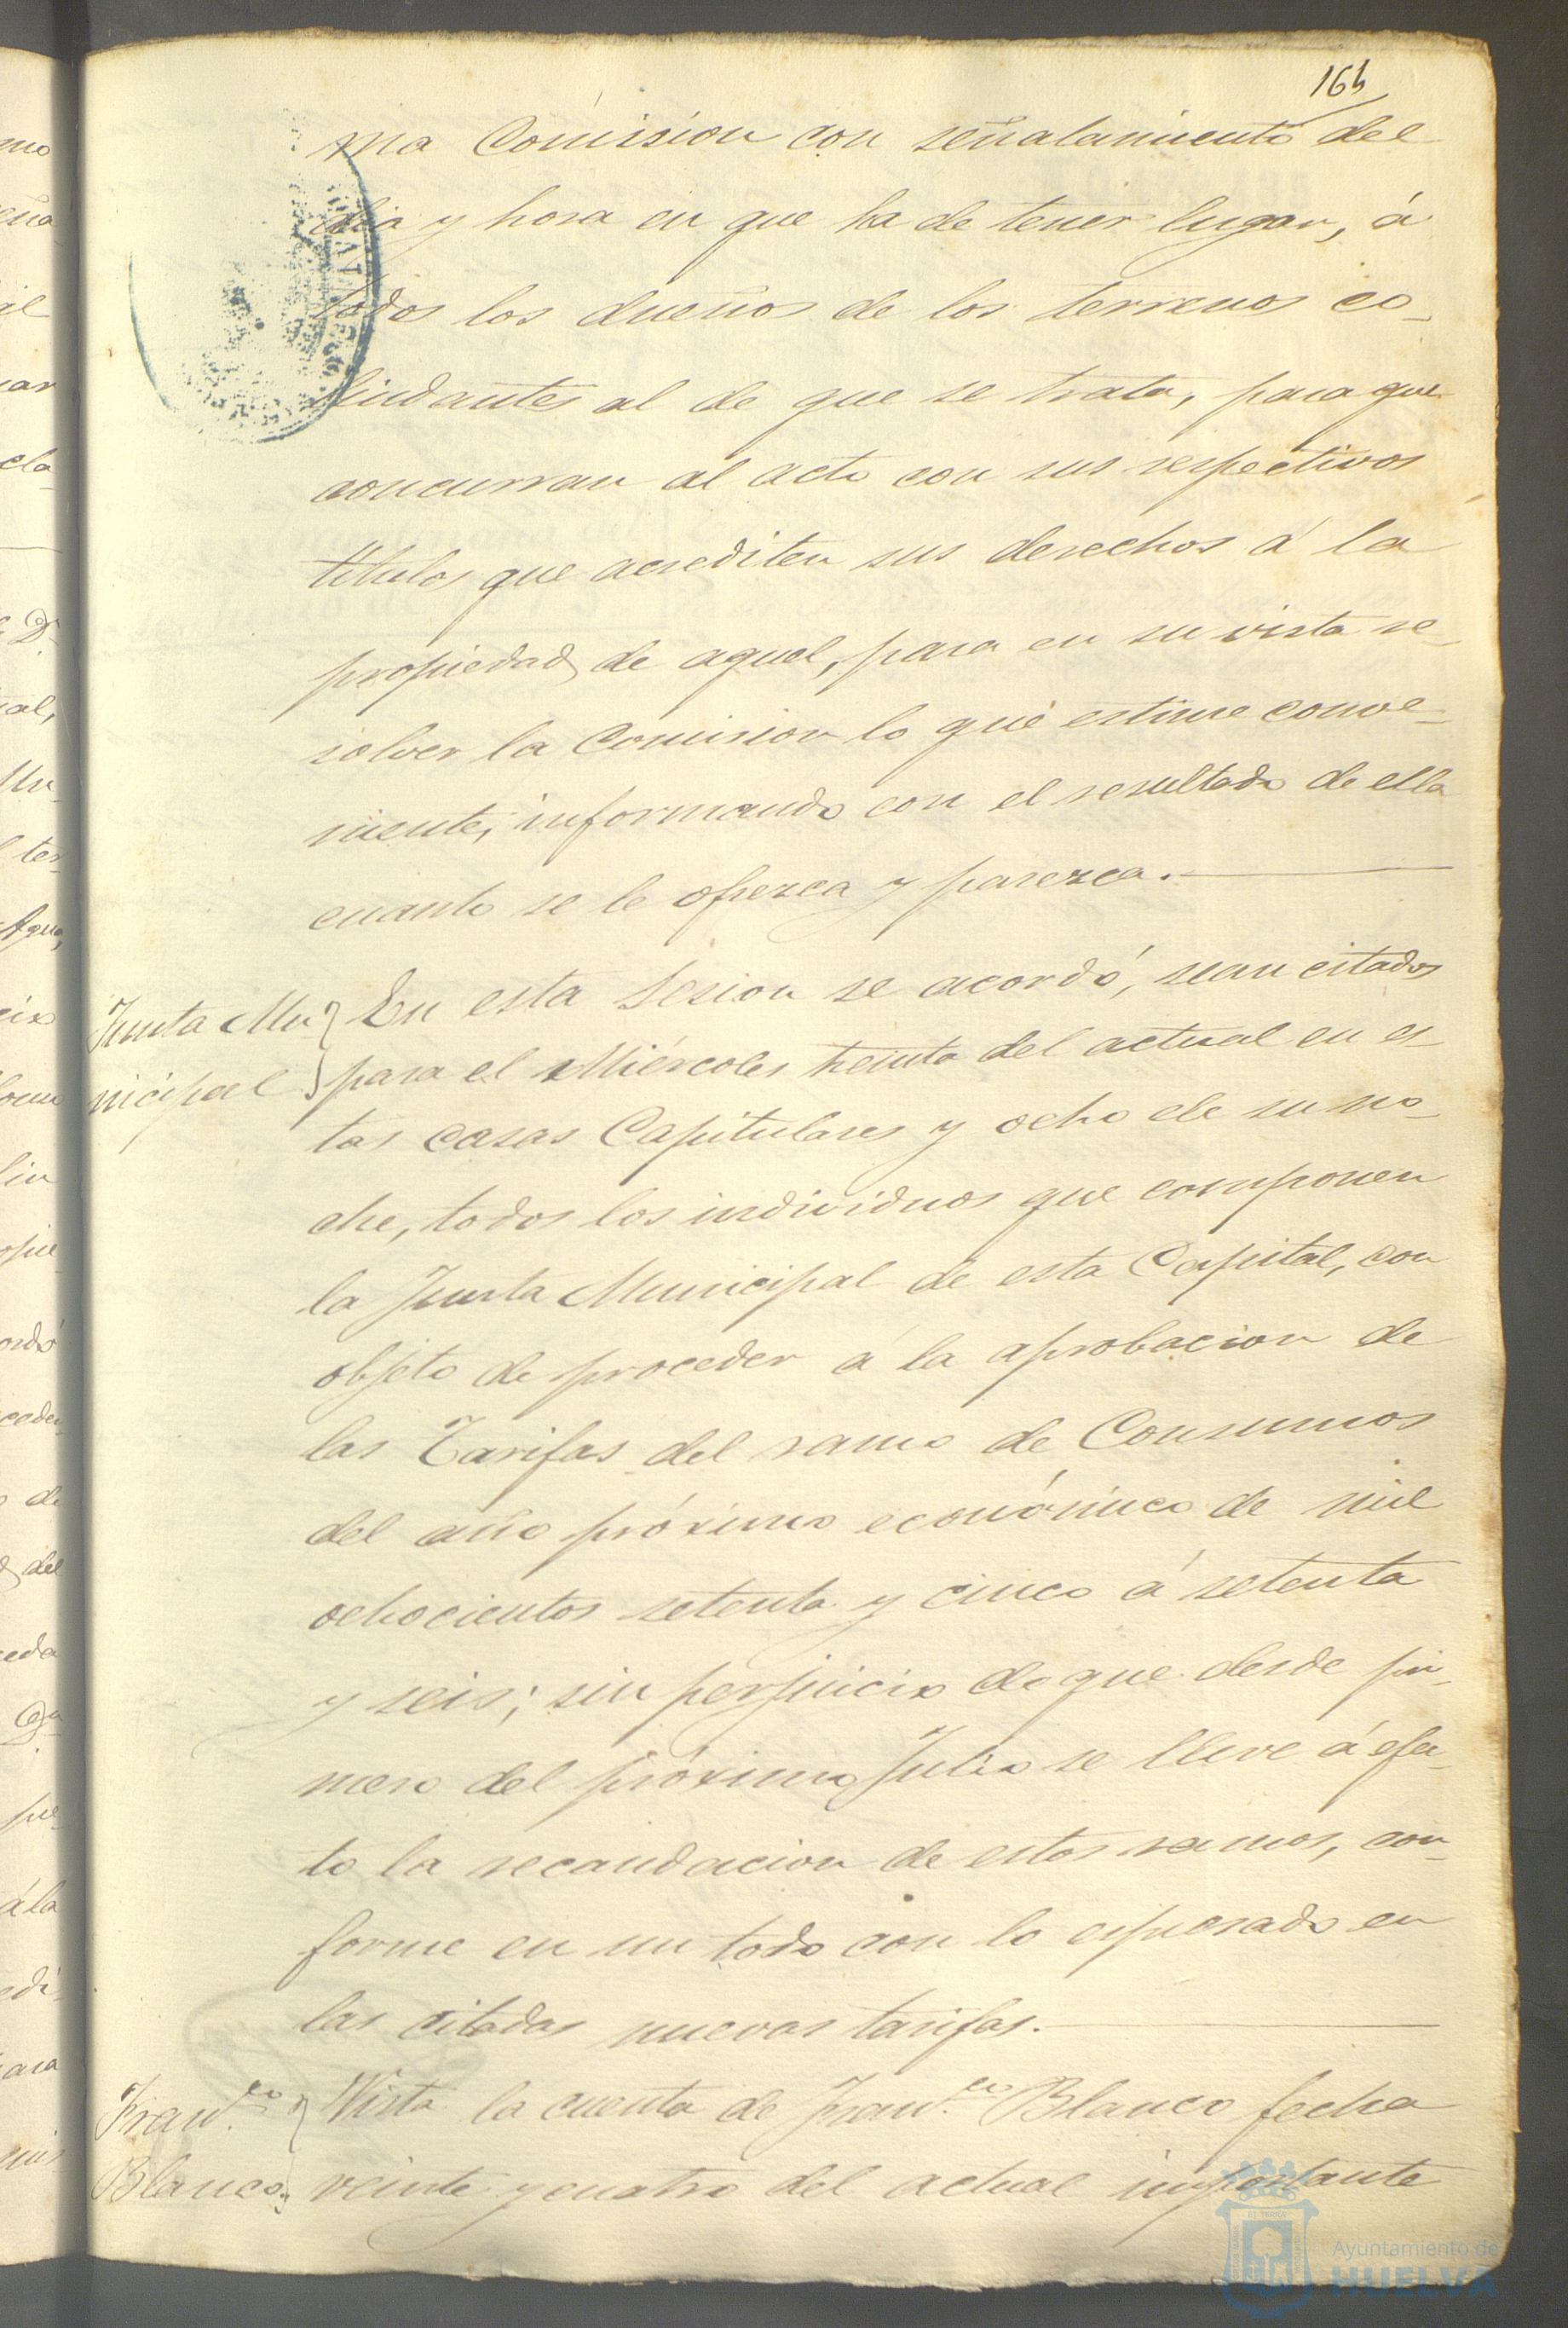 164
ma Comision con señalamiento del
dia y hora en que ha de tener lugar, á
todos los dueños de los terrenos co-
lindantes al de que se trata, para que
concurran al acto con sus respectivos
titulos que acrediten sus derechos á la
propiedad de aquel, para en su vista re-
solver la Comision lo que estime conve-
niente, informando con el resultado de ella
cuanto se le ofrezca y parezca.
Junta Mu-
nicipal
En esta Sesion se acordó, sean citados
para el Miércoles treinta del actual en es-
tas casas Capitulares y ocho de su no-
che, todos los individuos que componen
la Junta Municipal de esta Capital, con
objeto de proceder á la aprobacion de
las Tarifas del ramo de Consumos
del año próximo económico de mil
ochocientos setenta y cinco á setenta
y seis; sin perjuicio de que desde pri-
mero del próximo Julio se lleve á efec-
to la recaudacion de estos ramos, con-
forme en un todo con lo espresado en
las citadas nuevas tarifas.
Franco.
Blanco
Vista la cuenta de Franco. Blanco fecha
veinte y cuatro del actual importante
Ayuntamiento de
HUELVA